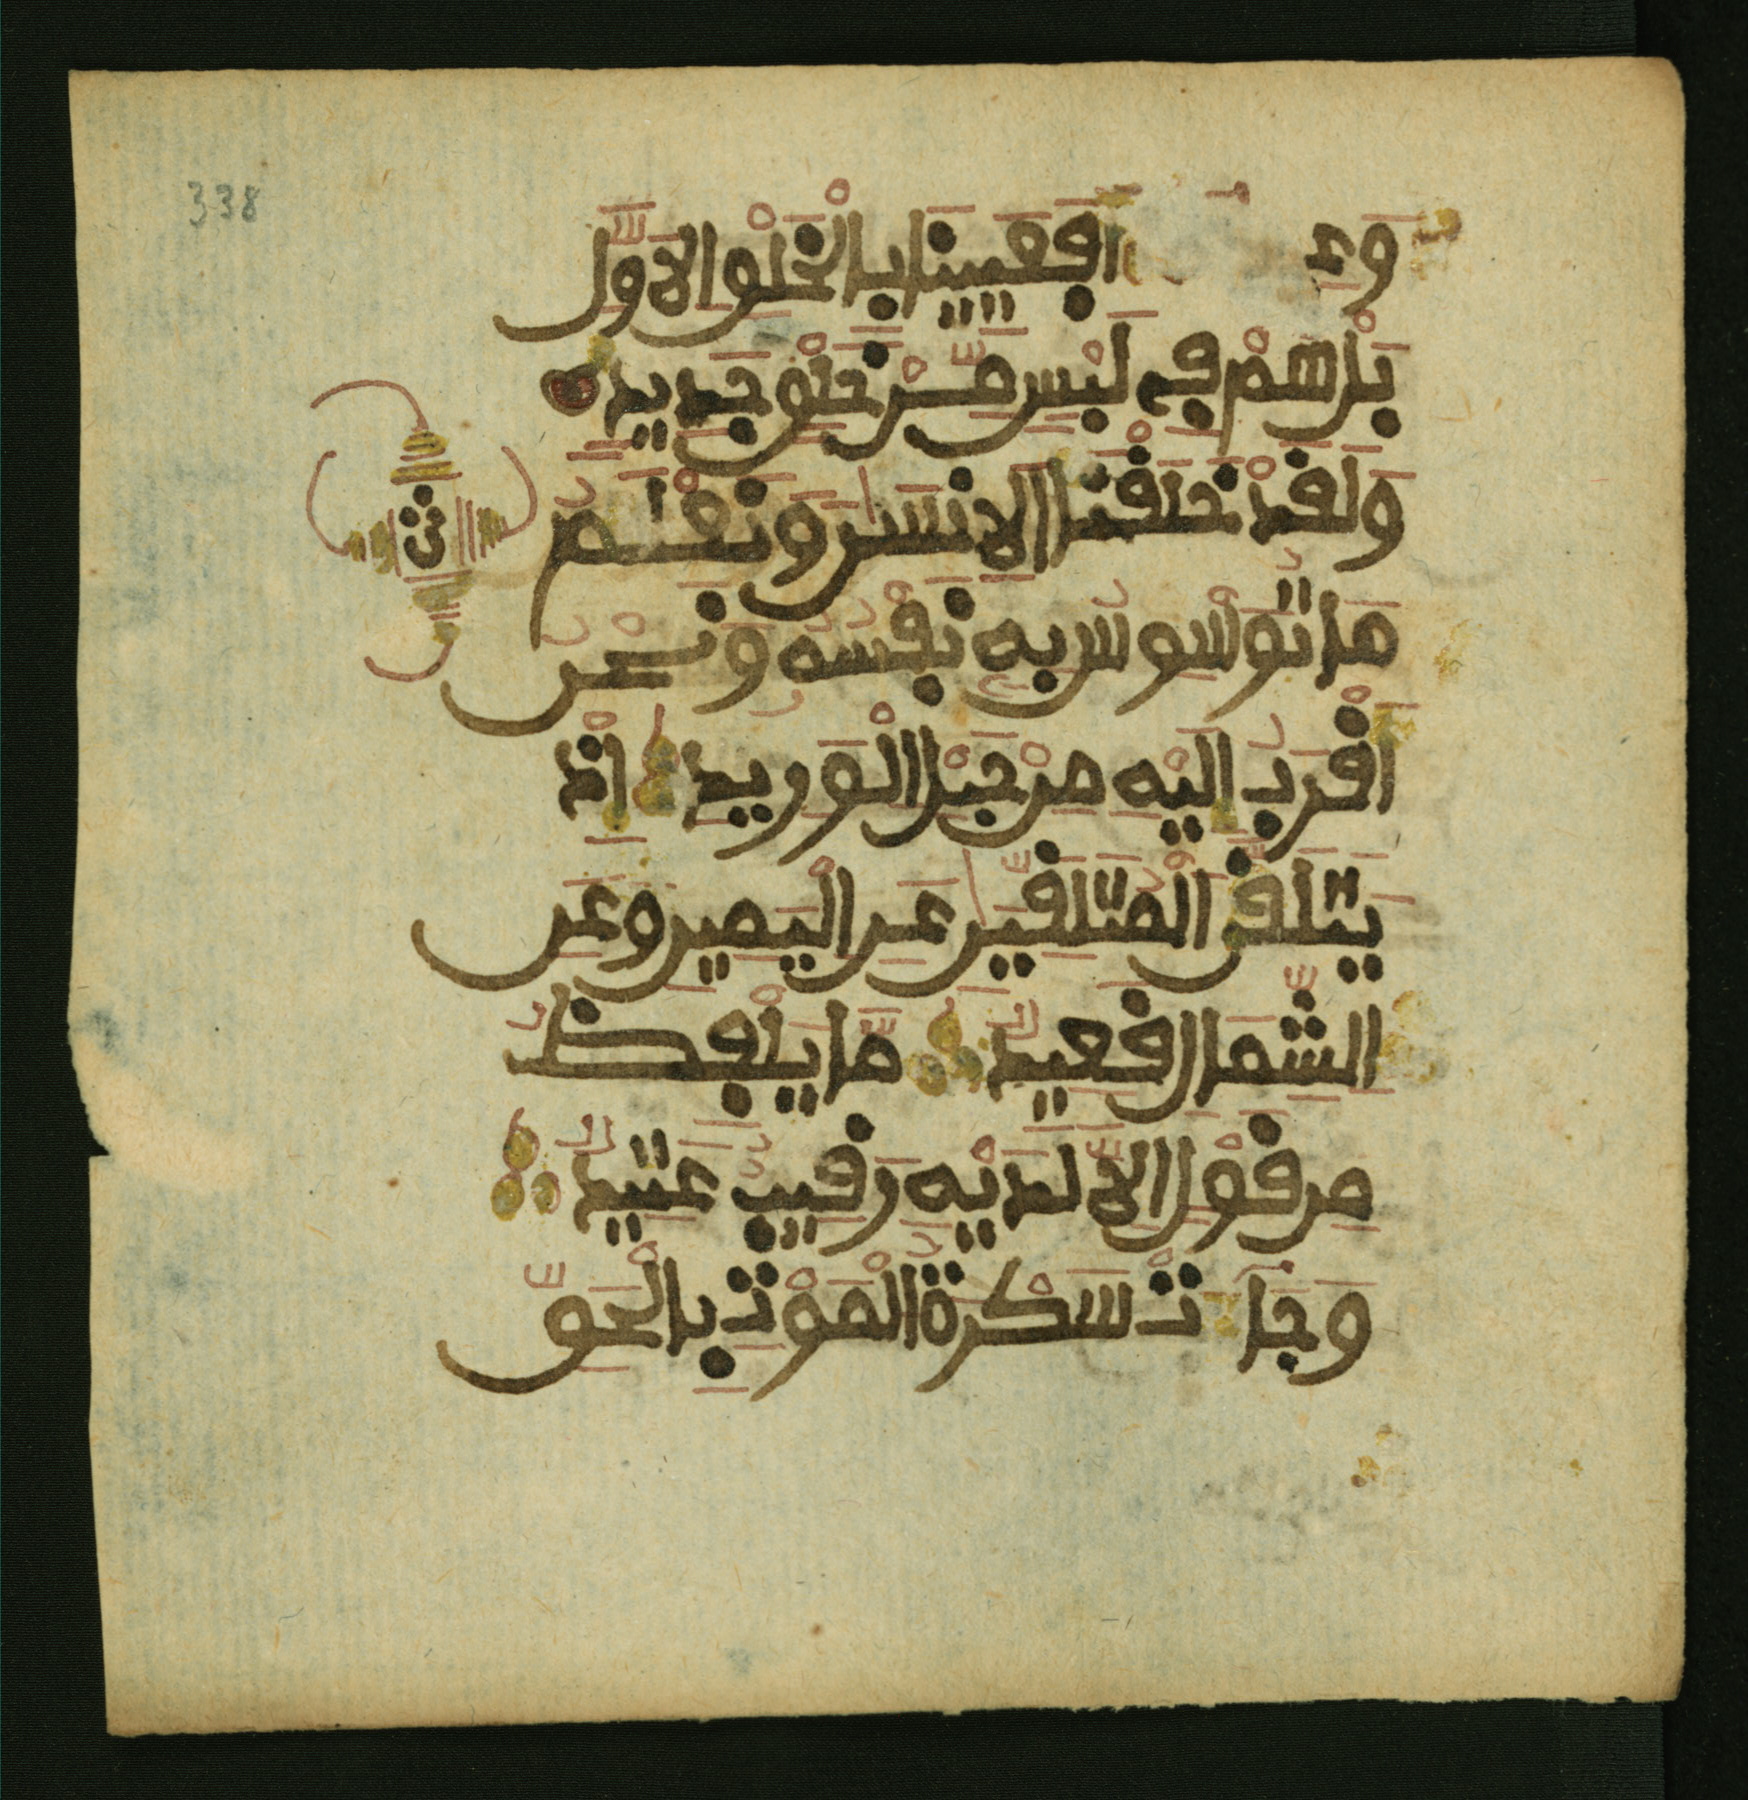 338
وع افعيينا بالخلق الاول
بل هم في لبس من خلق جديد
ولقد خلقنا الانسن ونعلم
ث
ما توسوس به نفسه ونحن
اقرب اليه من حبل الوريد اذ
يتلقى المتلقين عن اليمين وعن
الشمال قعيد ما يلفظ
من قول الا لديه رقيب عتيد
وجات سكرة الموت بالحق